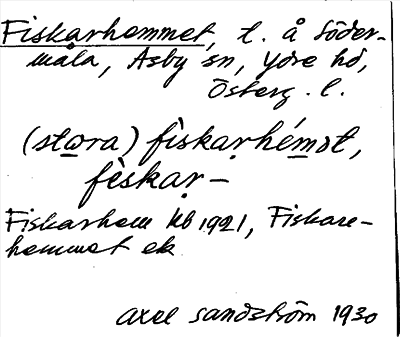 Fiskarhemmet, t. å Söder-
måla, Asby sn, Ydre hd,
Österg. l.
(stora) fiskarhémət,
fèskar–
Fiskarhem kb 1921, Fiskare-
hemmet ek
Axel Sandström 1930